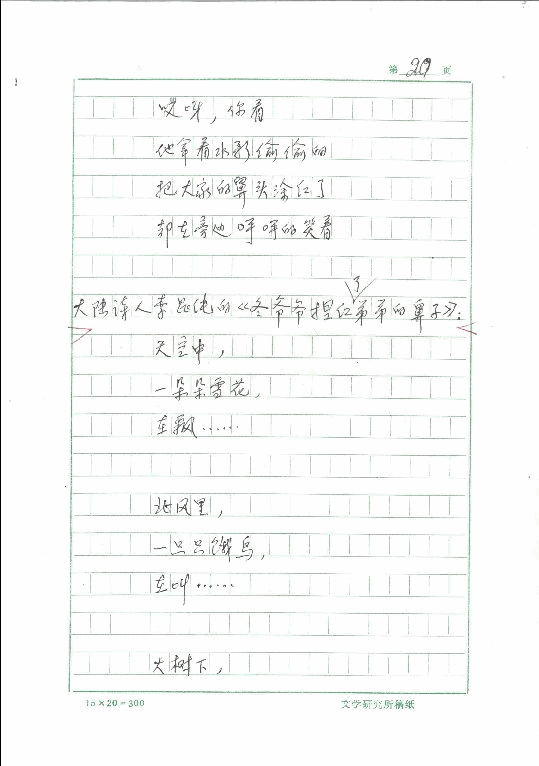 第 29 页
哎呀，你看
他拿着水彩偷偷的
把大家的鼻头涂红了
却在旁边呼呼的笑着
了
大陆诗人李昆纯的《冬爷爷捏红弟弟的鼻子》：
天空中，
一朵朵雪花，
在飘……
北风里，
一只只饿鸟，
在叫……
大树下，
15×20=300 文学研究所稿纸